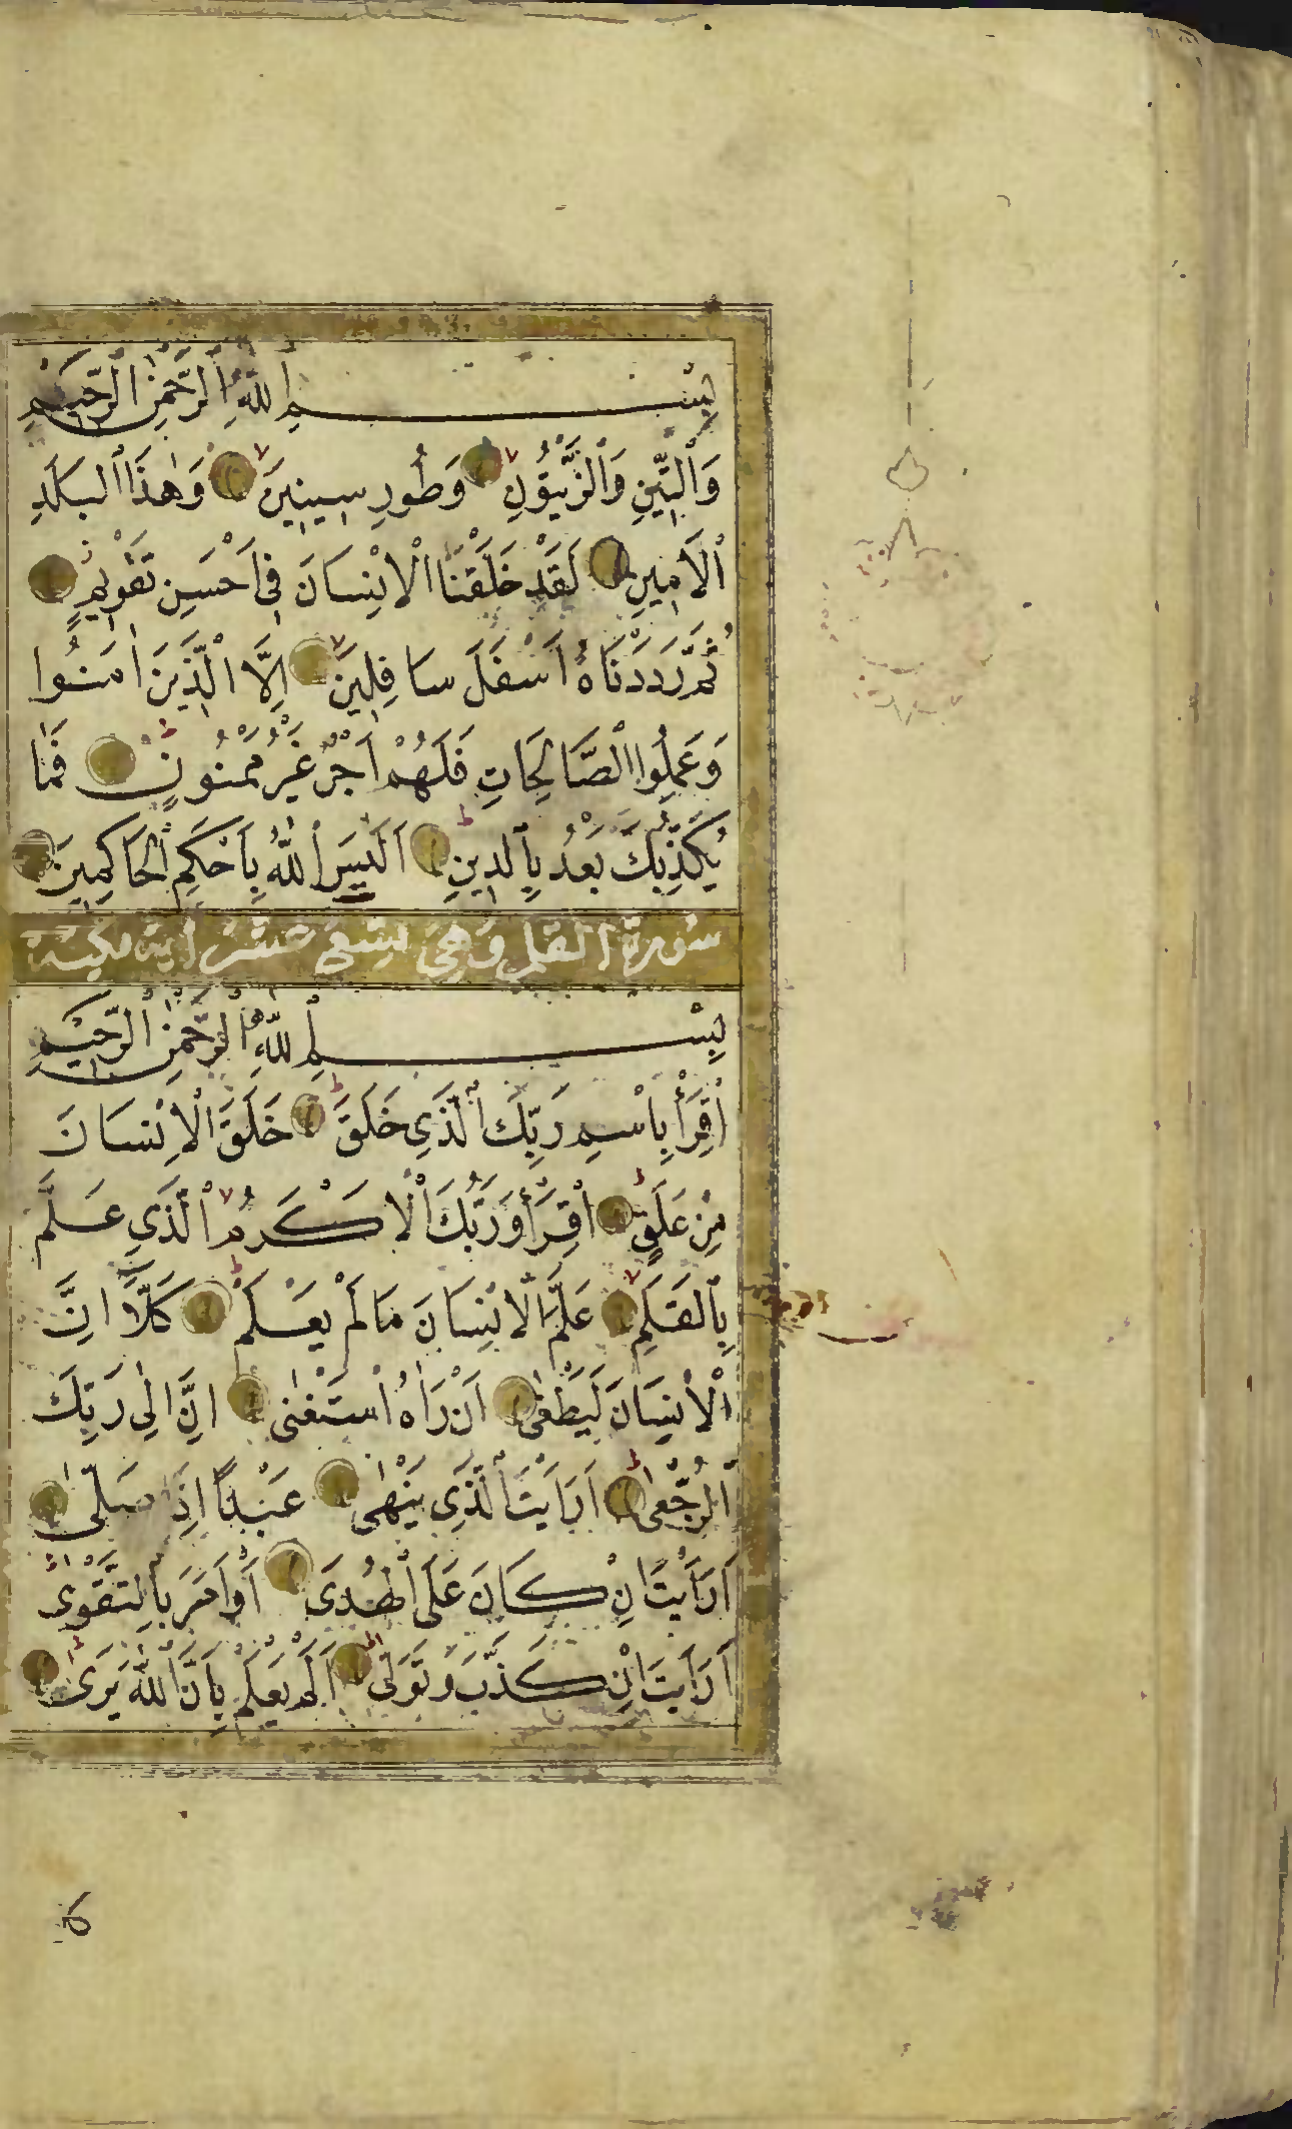 بِسْمِ اللَّهِ الرَّحْمٰنِ الرَّحِيمِ
وَالتِّينِ وَالزَّيْتُونِ وَطُورِ سِينِينَ وَهٰذَا الْبَلَدِ
الْأَمِينِ لَقَدْ خَلَقْنَا الْإِنْسَانَ فِي أَحْسَنِ تَقْوِيمٍ
ثُمَّ رَدَدْنَاهُ أَسْفَلَ سَافِلِينَ إِلَّا الَّذِينَ اٰمَنُوا
وَعَمِلُوا الصَّالِحَاتِ فَلَهُمْ أَجْرٌ غَيْرُ مَمْنُونٍ فَمَا
يُكَذِّبُكَ بَعْدُ بِالدِّينِ أَلَيْسَ اللّٰهُ بِأَحْكَمِ الْحَاكِمِينَ
سورة القلم وهي تسع عشر اية مكية
بِسْمِ اللَّهِ الرَّحْمٰنِ الرَّحِيمِ
اقْرَأْ بِاسْمِ رَبِّكَ الَّذِي خَلَقَ خَلَقَ الْإِنْسَانَ
مِنْ عَلَقٍ اقْرَأْ وَرَبُّكَ الْأَكْرَمُ الَّذِي عَلَّمَ
بِالْقَلَمِ عَلَّمَ الْإِنْسَانَ مَا لَمْ يَعْلَمْ كَلَّا إِنَّ
الْإِنْسَانَ لَيَطْغٰى أَنْ رَاٰهُ اسْتَغْنٰى إِنَّ إِلٰى رَبِّكَ
الرُّجْعٰى أَرَأَيْتَ الَّذِي يَنْهٰى عَبْدًا إِذَا صَلّٰى
أَرَأَيْتَ إِنْ كَانَ عَلَى الْهُدٰى أَوْ أَمَرَ بِالتَّقْوٰى
أَرَأَيْتَ إِنْ كَذَّبَ وَتَوَلّٰى أَلَمْ يَعْلَمْ بِأَنَّ اللّٰهَ يَرٰى